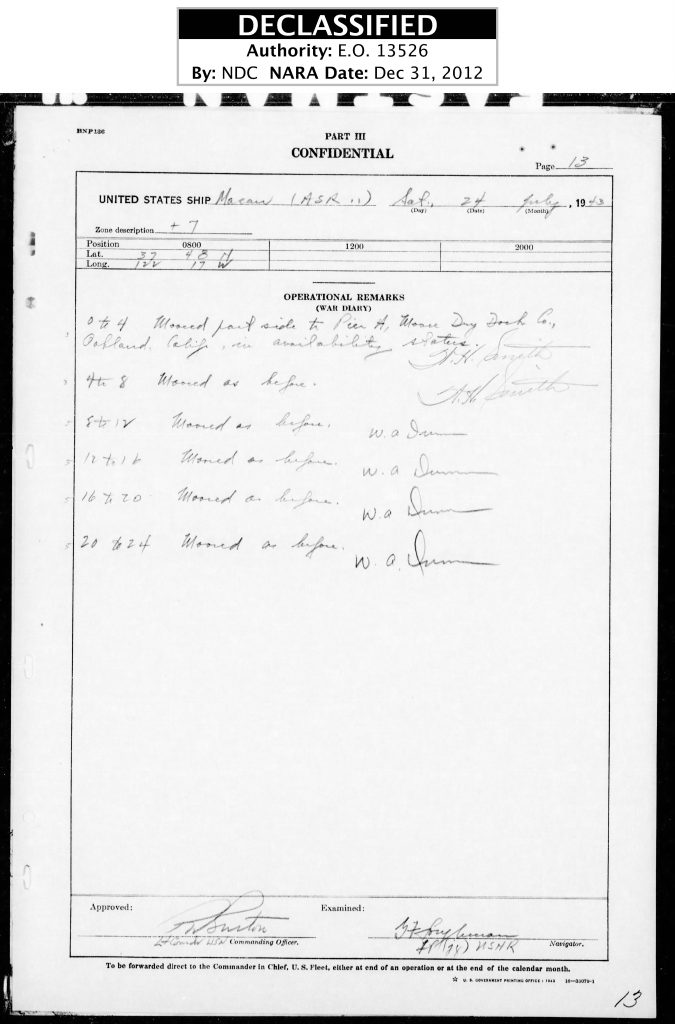 DECLASSIFIED
Authority: E.O. 13526
By: NDC NARA Date: Dec 31, 2012
BNP136
PART III
CONFIDENTIAL
Page 13
UNITED STATES SHIP Macaw (ASR 11) Sat., 24 July, 1943
(Day) (Date) (Month)
Zone description + 7
Position 0800 1200 2000
Lat. 37 48 N
Long. 122 17 W
OPERATIONAL REMARKS
(WAR DIARY)
0 to 4 Moored port side to Pier A, Moore Dry Dock Co.,
Oakland, Calif., in availability status.
H.H. Smith
4 to 8 Moored as before.
H.H. Smith
8 to 12 Moored as before.
W. a Dunn
12 to 16 Moored as before.
W. a Dunn
16 to 20 Moored as before.
W. a Dunn
20 to 24 Moored as before.
W. a. Dunn
Approved:
Examined:
Burton
Lt Comdr USN Commanding Officer.
USNR Navigator.
To be forwarded direct to the Commander in Chief, U. S. Fleet, either at end of an operation or at the end of the calendar month.
☆ U. S. GOVERNMENT PRINTING OFFICE : 1943
13